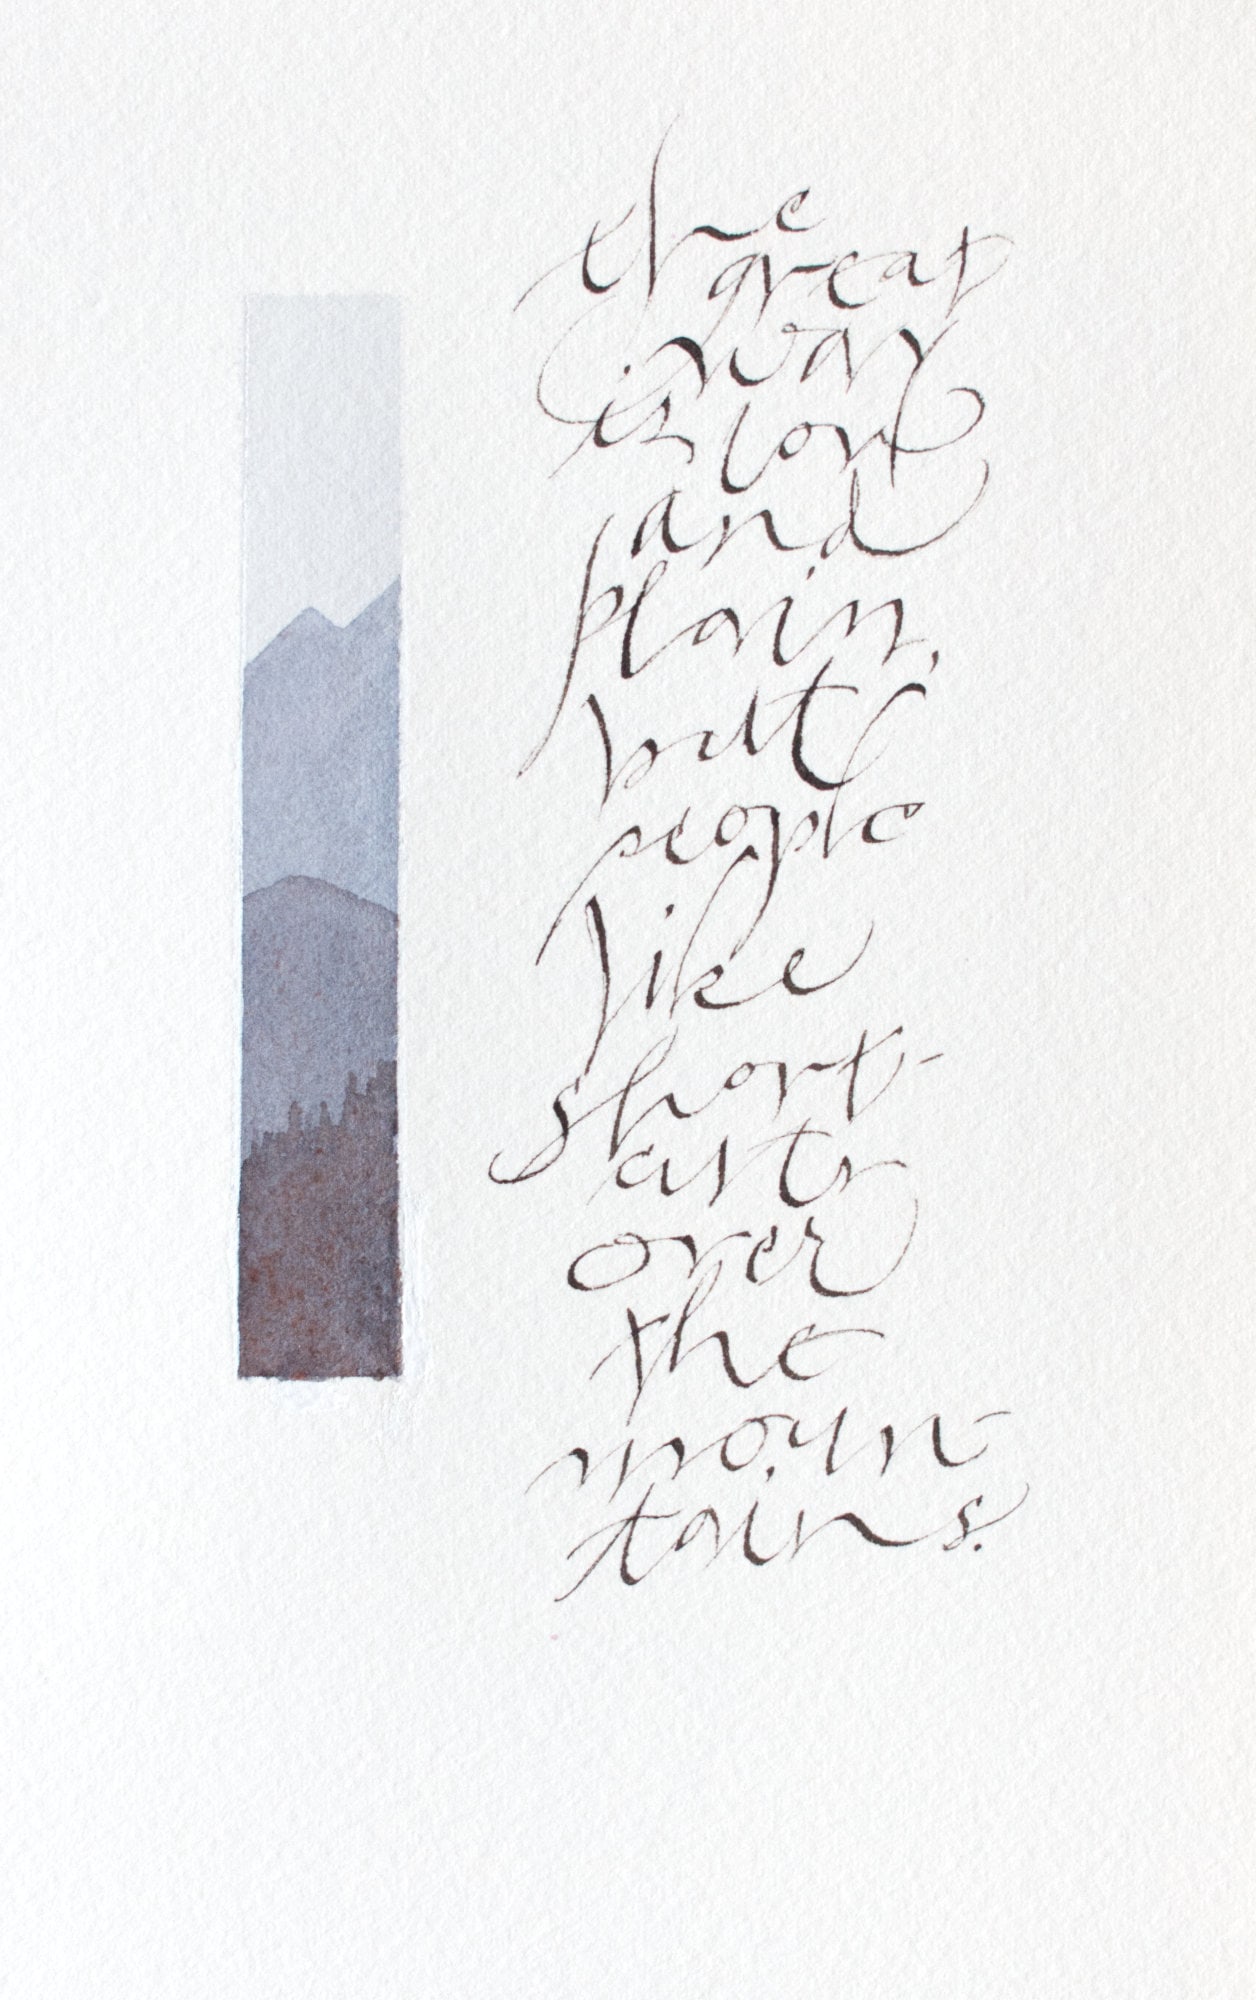 the
great
way
is low
and
plain,
but
people
like
short-
cuts
over
the
moun-
tains.